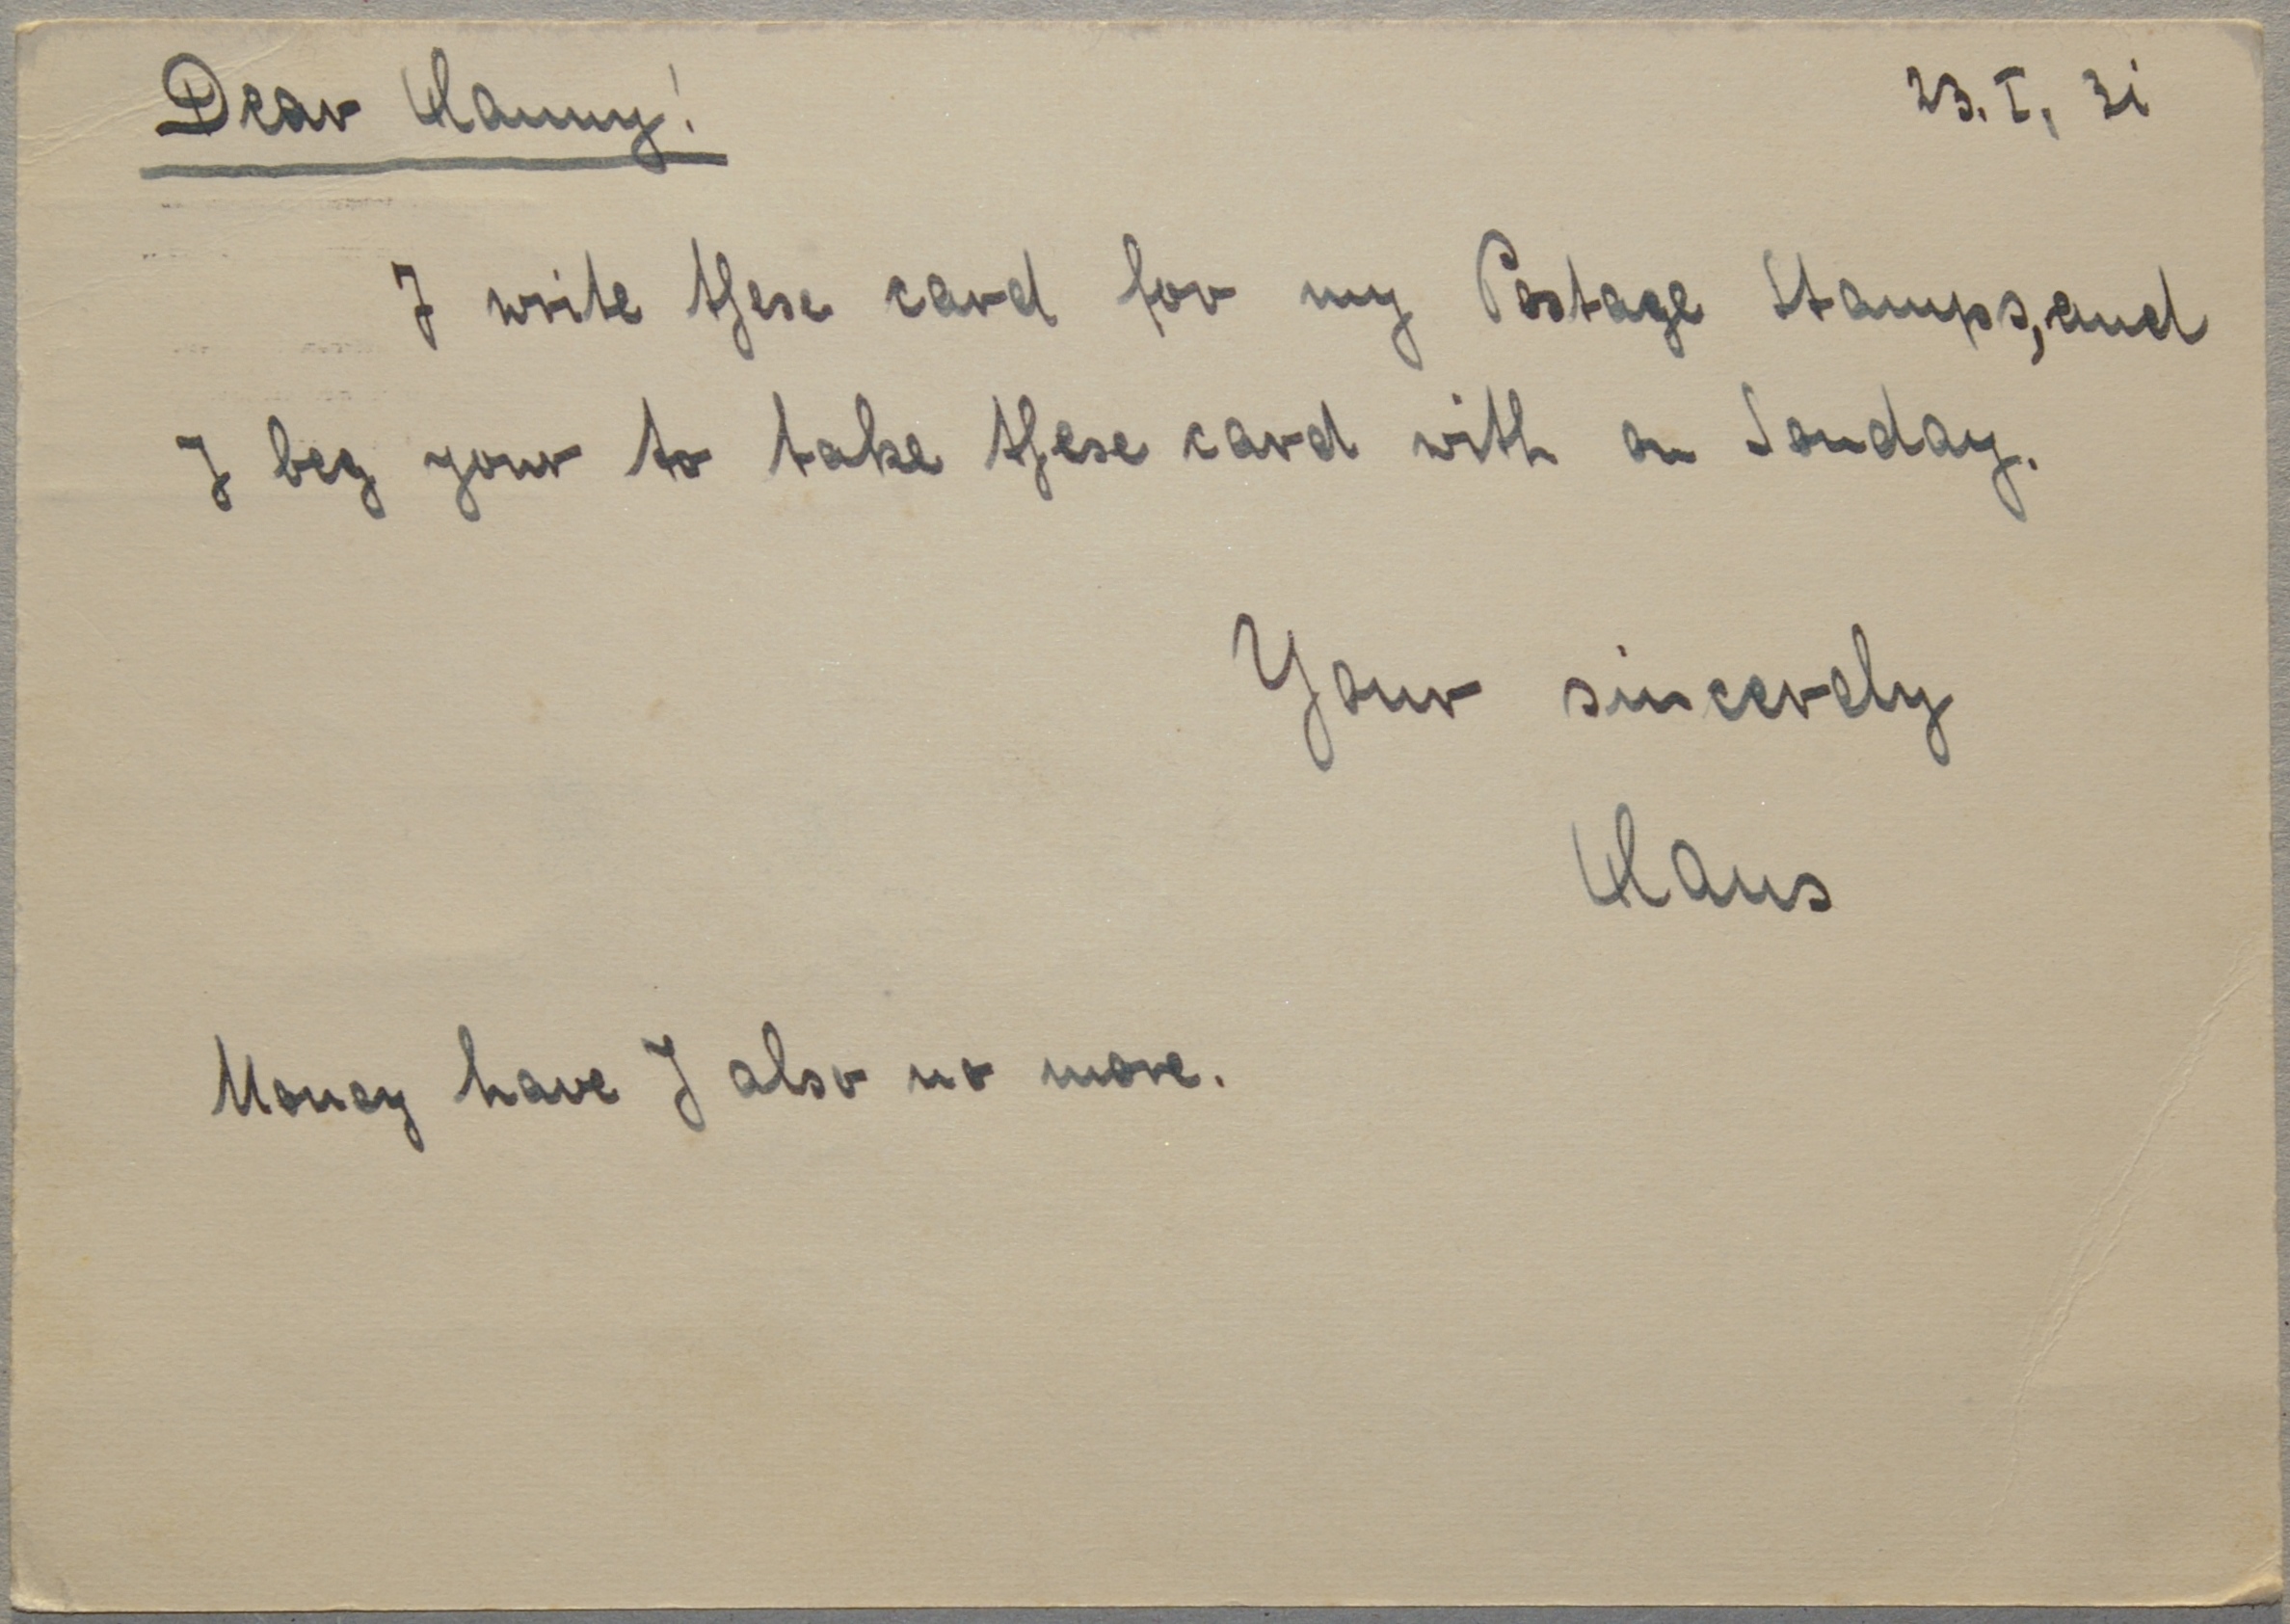 Dear Hanny!
23. I. 31
I write these card for my Postage Stamps, and
I beg your to take these card with on Sonday.
Your sincerely
Hans
Money have I also no more.